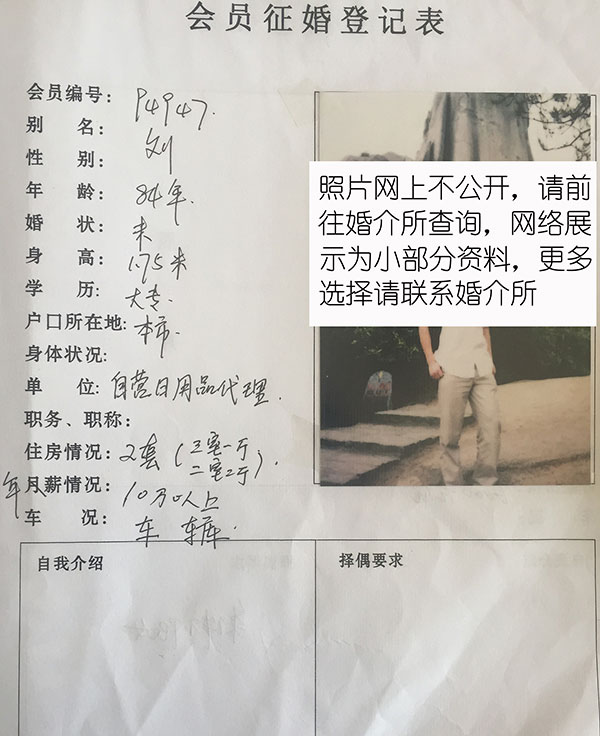 会员征婚登记表
会员编号: P4947.
别 名: 刘
性 别:
年 龄: 84年.
婚 状: 未
身 高: 1.75米
学 历: 大专.
户口所在地: 本市.
身体状况:
单 位: 自营日用品代理.
职务、职称:
住房情况: 2套(三室一厅
二室2厅).
年月薪情况: 10万以上
车 况: 车 车库.
照片网上不公开，请前
往婚介所查询，网络展
示为小部分资料，更多
选择请联系婚介所
自我介绍
择偶要求